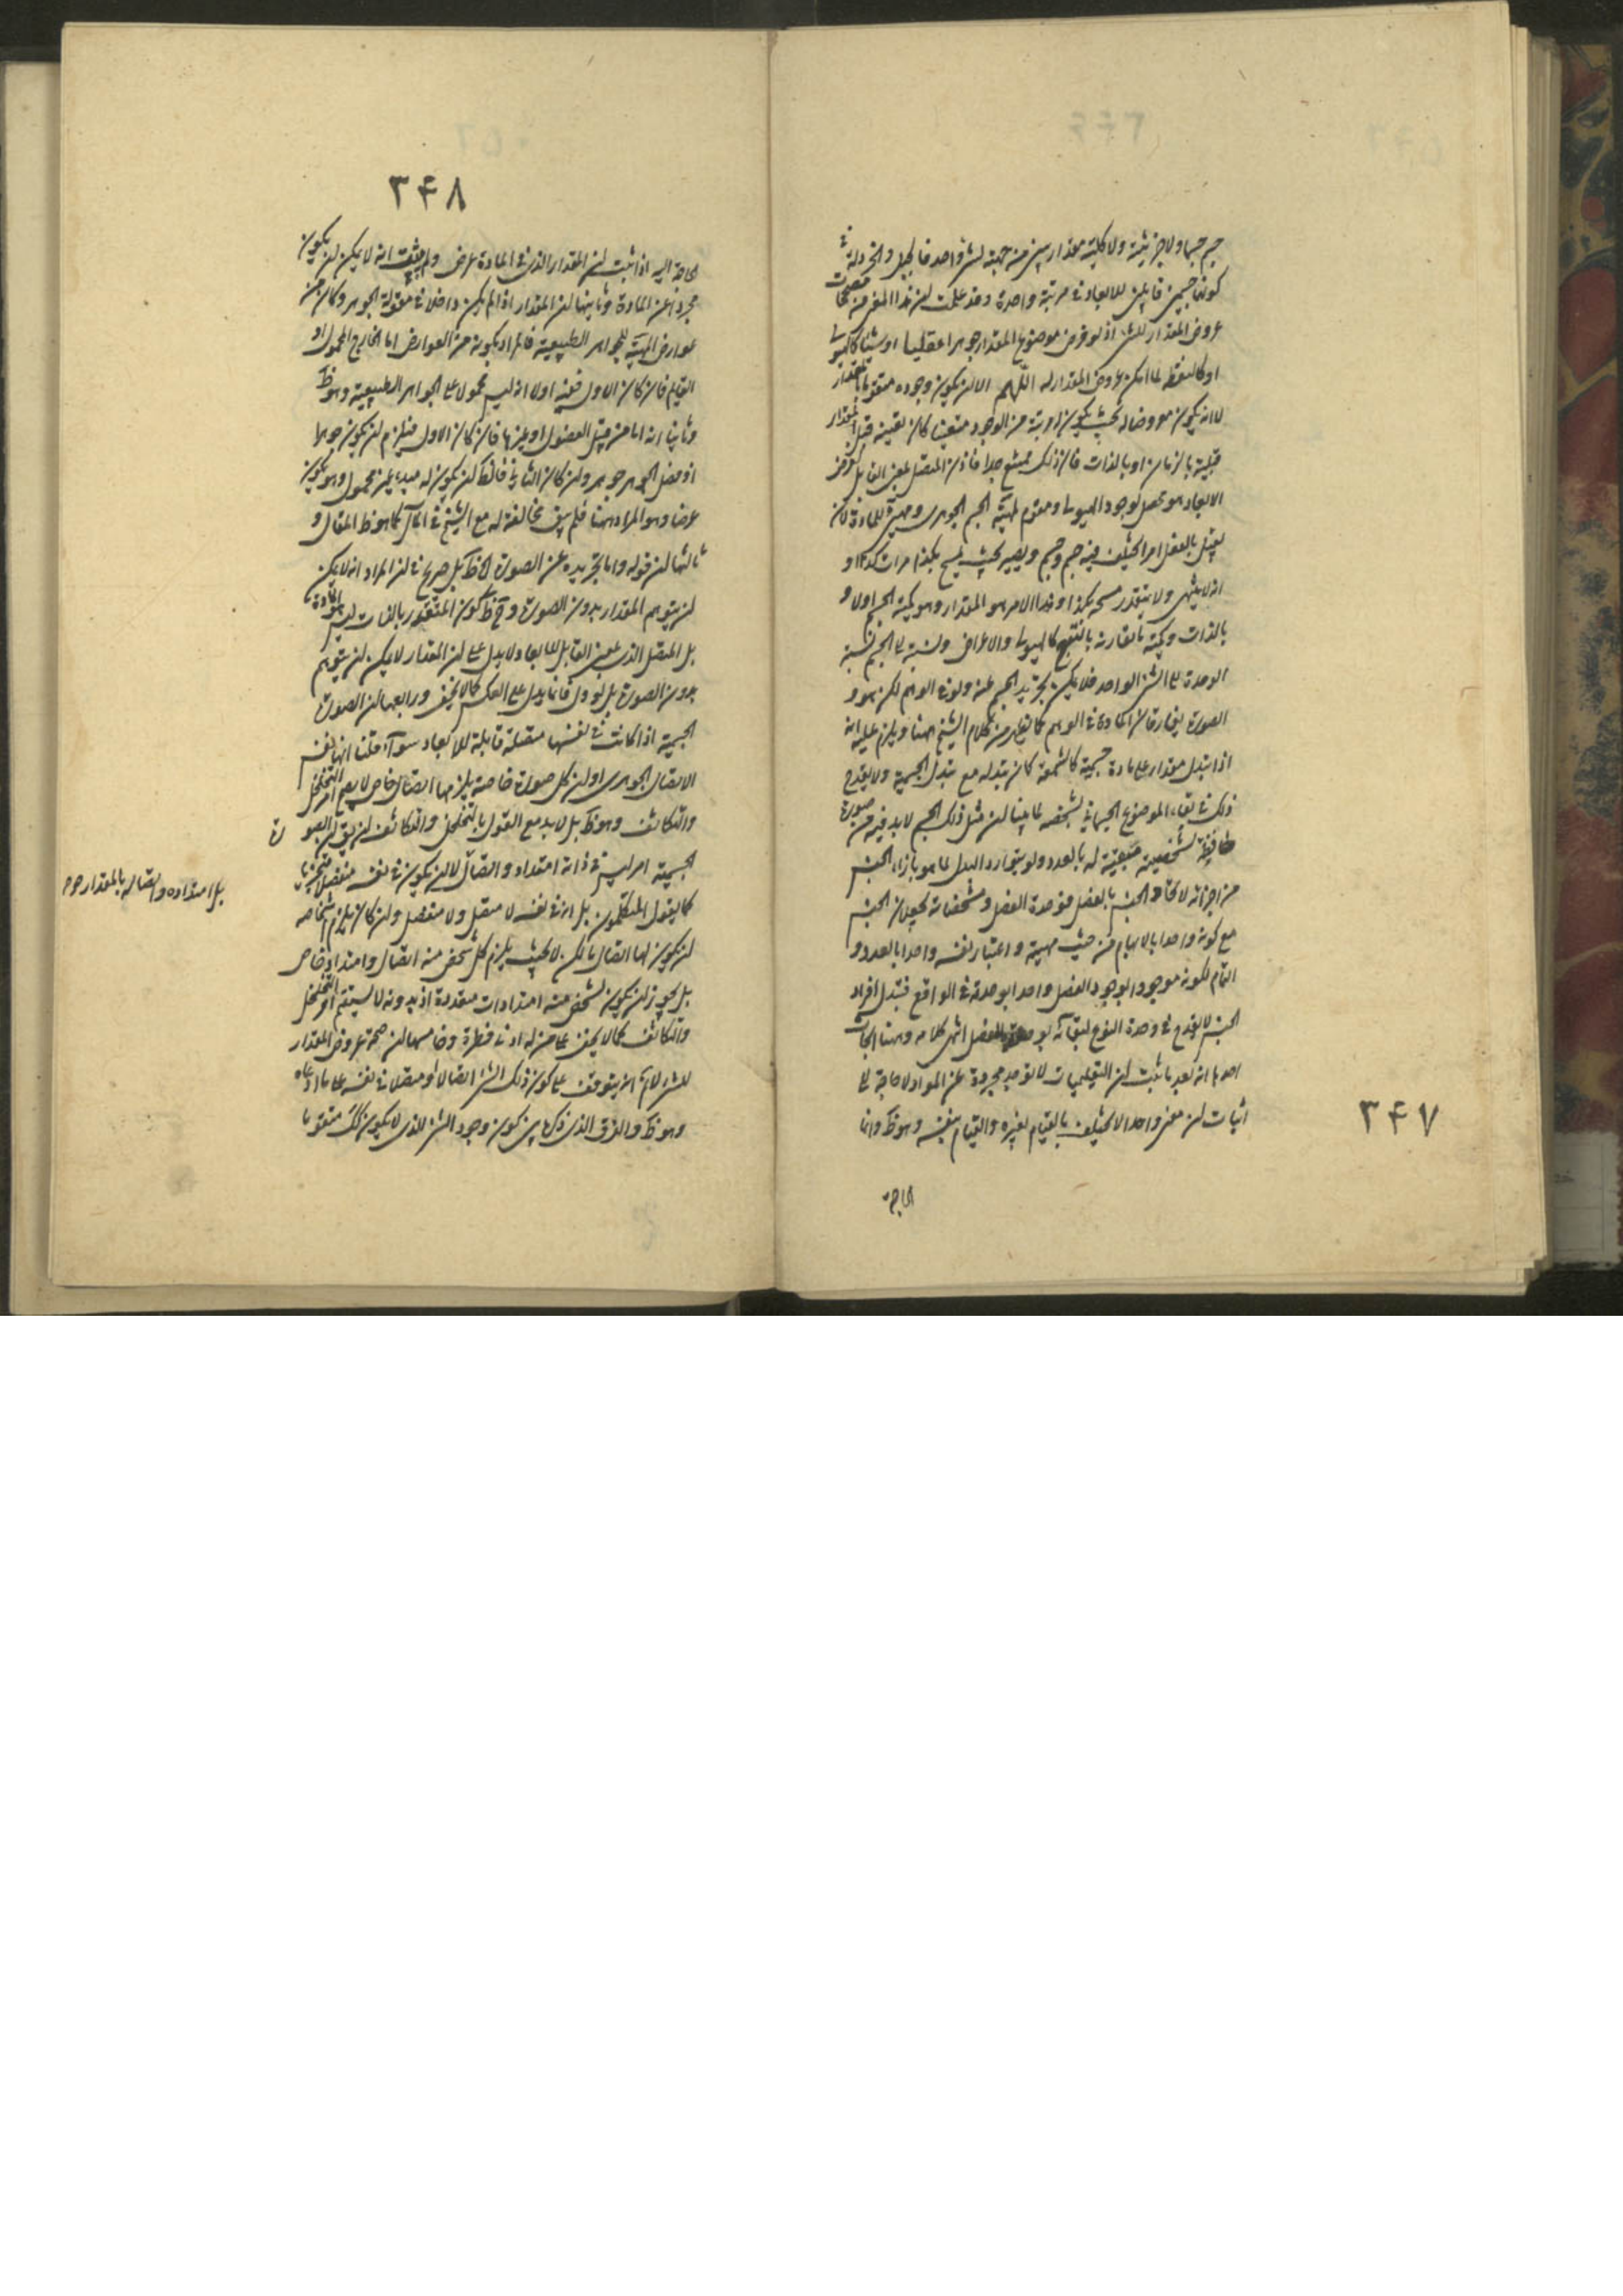 جسم جسما ولا جزئية ولا كلية مقدارين من جهة لشئ واحد فالجبل والخردلة في
كونهما جسمين قابلين للابعاد في مرتبة واحدة وقد علمت ان هذا المعنى من مصححات
عروض المقدار للشئ اذ لو فرض موضوع المقدار جوهرا عقليا او شيئا كالهيولى
او كالنقطة لما امكن عروض المقدار له اللهم الا ان يكون وجوده متقوما بالمقدار
لا انه يكون معروضا له بحيث يكون له مرتبة من الوجود متعينا كان تعينه قبل المقدار
قبلية بالزمان او بالذات فان ذلك ممتنع جدا فاذن المتصل بمعنى القابل لفرض
الابعاد هو محصل لوجود الهيولى ومقوم لمهية الجسم الجوهرى ومهيئ للمادة لان
يقبل بالفعل امرا يختلف فيه جسم وجسم ويصير بحيث يمسح بكذا مرات كذا او
انه لا ينتهى ولا يتقدر مسحه بكذا وهذا الامر هو المقدار وهو كمية الجسم اولا و
بالذات وكمية ما يقارنه بالتبع كالهيولى والاعراض ونسبته الى الجسم نسبة
الوحدة الى الشئ الواحد فلا يمكن تجريد الجسم عنه ولو في الوهم لكن هو و
الصورة يفارقان المادة في الوهم كما يظهر من كلام الشيخ ههنا ويلزم عليه انه
اذا تبدل مقدار على مادة جسمية كالشمعة كان تبدله مع تبدل الجسمية ولا يقدح
ذلك في بقاء الموضوع الجسمانى بشخصه لما بينا ان مثل ذلك الجسم لا بد فيه من صورة
طبيعية مبقية له بالعدد ولو بتوارد البدل لما هو بازاء الجنس
من اجزائه لاتحاد الجنس بالفصل فوحدة الفصل ومشخصاته يجعلان الجنس
مع كونه واحدا بالابهام من حيث مهيته واعتبار نفسه واحدا بالعدد و
التام لكونه موجودا بوجود الفصل واحدا بوحدته في الواقع فتبدل افراد
الجنس لا يقدح في وحدة النوع لبقائه بوحدة الفصل انتهى كلامه وههنا ابحاث
احدها انه بعد ما ثبت ان التعليميات لا توجد مجردة عن المواد لا حاجة الى
اثبات ان معنى واحدا لا يختلف بالقيام لغيره والقيام بنفسه وهو ظ وانما
الحاجة
٣۴٧
٣۴٨
الحاجة اليه اذا ثبت ان المقدار الذى في المادة عرض ولم يثبت انه لا يمكن ان يكون
مجردا عن المادة وثانيها ان المقدار اذا لم يكن داخلا في مقولة الجوهر وكان من
عوارض المهية للجواهر الطبيعية فالمراد بكونه من العوارض اما الخارج المحمول او
القائم فان كان الاول ففيه اولا انه ليس محمولا على الجواهر الطبيعية وهو ظ
وثانيا انه اما من قبيل الفصول او غيرها فان كان الاول فيلزم ان يكون جوهرا
اذ فصل الجوهر جوهر وان كان الثانى فالظ ان يكون له مبدء غير محمول وهو يكون
عرضا وهو المراد ههنا فلم يبق مخالفة له مع الشيخ في المآل كما هو ظ المقال و
ثالثها ان قوله واما تجريده عن الصورة الخ ظ بل صريح في ان المراد انه لا يمكن
ان يتوهم المقدار بدون الصورة وح ظ كون المتقدر بالذات ليس هو المادة
بل المتصل الذى بمعنى القابل للابعاد ولا يدل على ان المقدار لا يمكن ان يتوهم
بدون الصورة بل لو دل فانما يدل على العكس كما لا يخفى ورابعها ان الصورة
الجسمية اذا كانت في نفسها متصلة قابلة للابعاد سواء قلنا انها نفس
الاتصال الجوهرى او ان كل صورة خاصة يلزمها اتصال خاص لا يصح امر التخلخل
والتكاثف وهو ظ بل لا بد مع القول بالتخلخل والتكاثف ان يق ان الصو
رة
الجسمية امر ليس في ذاته امتداد واتصال لا ان يكون في نفسه منفصلا متجزيا
بل امتداده واتصاله بالمقدار
كما يقول المتكلمون بل انه في نفسه لا متصل ولا منفصل وان كان يلزم اشخاصه
ان يكون لها اتصال ما لكن لا بحيث يلزم كل شخص منه اتصال وامتداد خاص
بل يجوز ان يكون لشخص منه امتدادات متعددة اذ بدونه لا يستقيم امر التخلخل
والتكاثف كما لا يخفى على من له ادنى فطرة وخامسها ان صحة عروض المقدار
للشئ لا نم انه يتوقف على كون ذلك الشئ اتصالا او متصلا في نفسه على ما ادعاه
وهو ظ والفرق الذى ذكره بين كون وجود الشئ الذى لا يكون كك متقوما